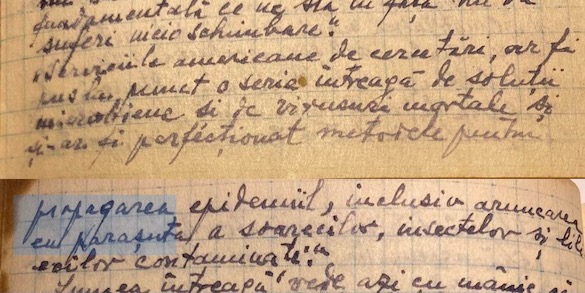 fundamentală ce ne stă în față nu va
suferi nicio schimbare."
"Serviciile americane de cercetări, ar fi
pus la punct o serie întreagă de soluții
microbiene și de virusuri mortale și
și-ar fi perfecționat metodele pentru
propagarea epidemiil, inclusiv aruncarea
cu parașuta a șoarecilor, insectelor și
contaminate."
Lumea întreagă vede azi cu mânie și